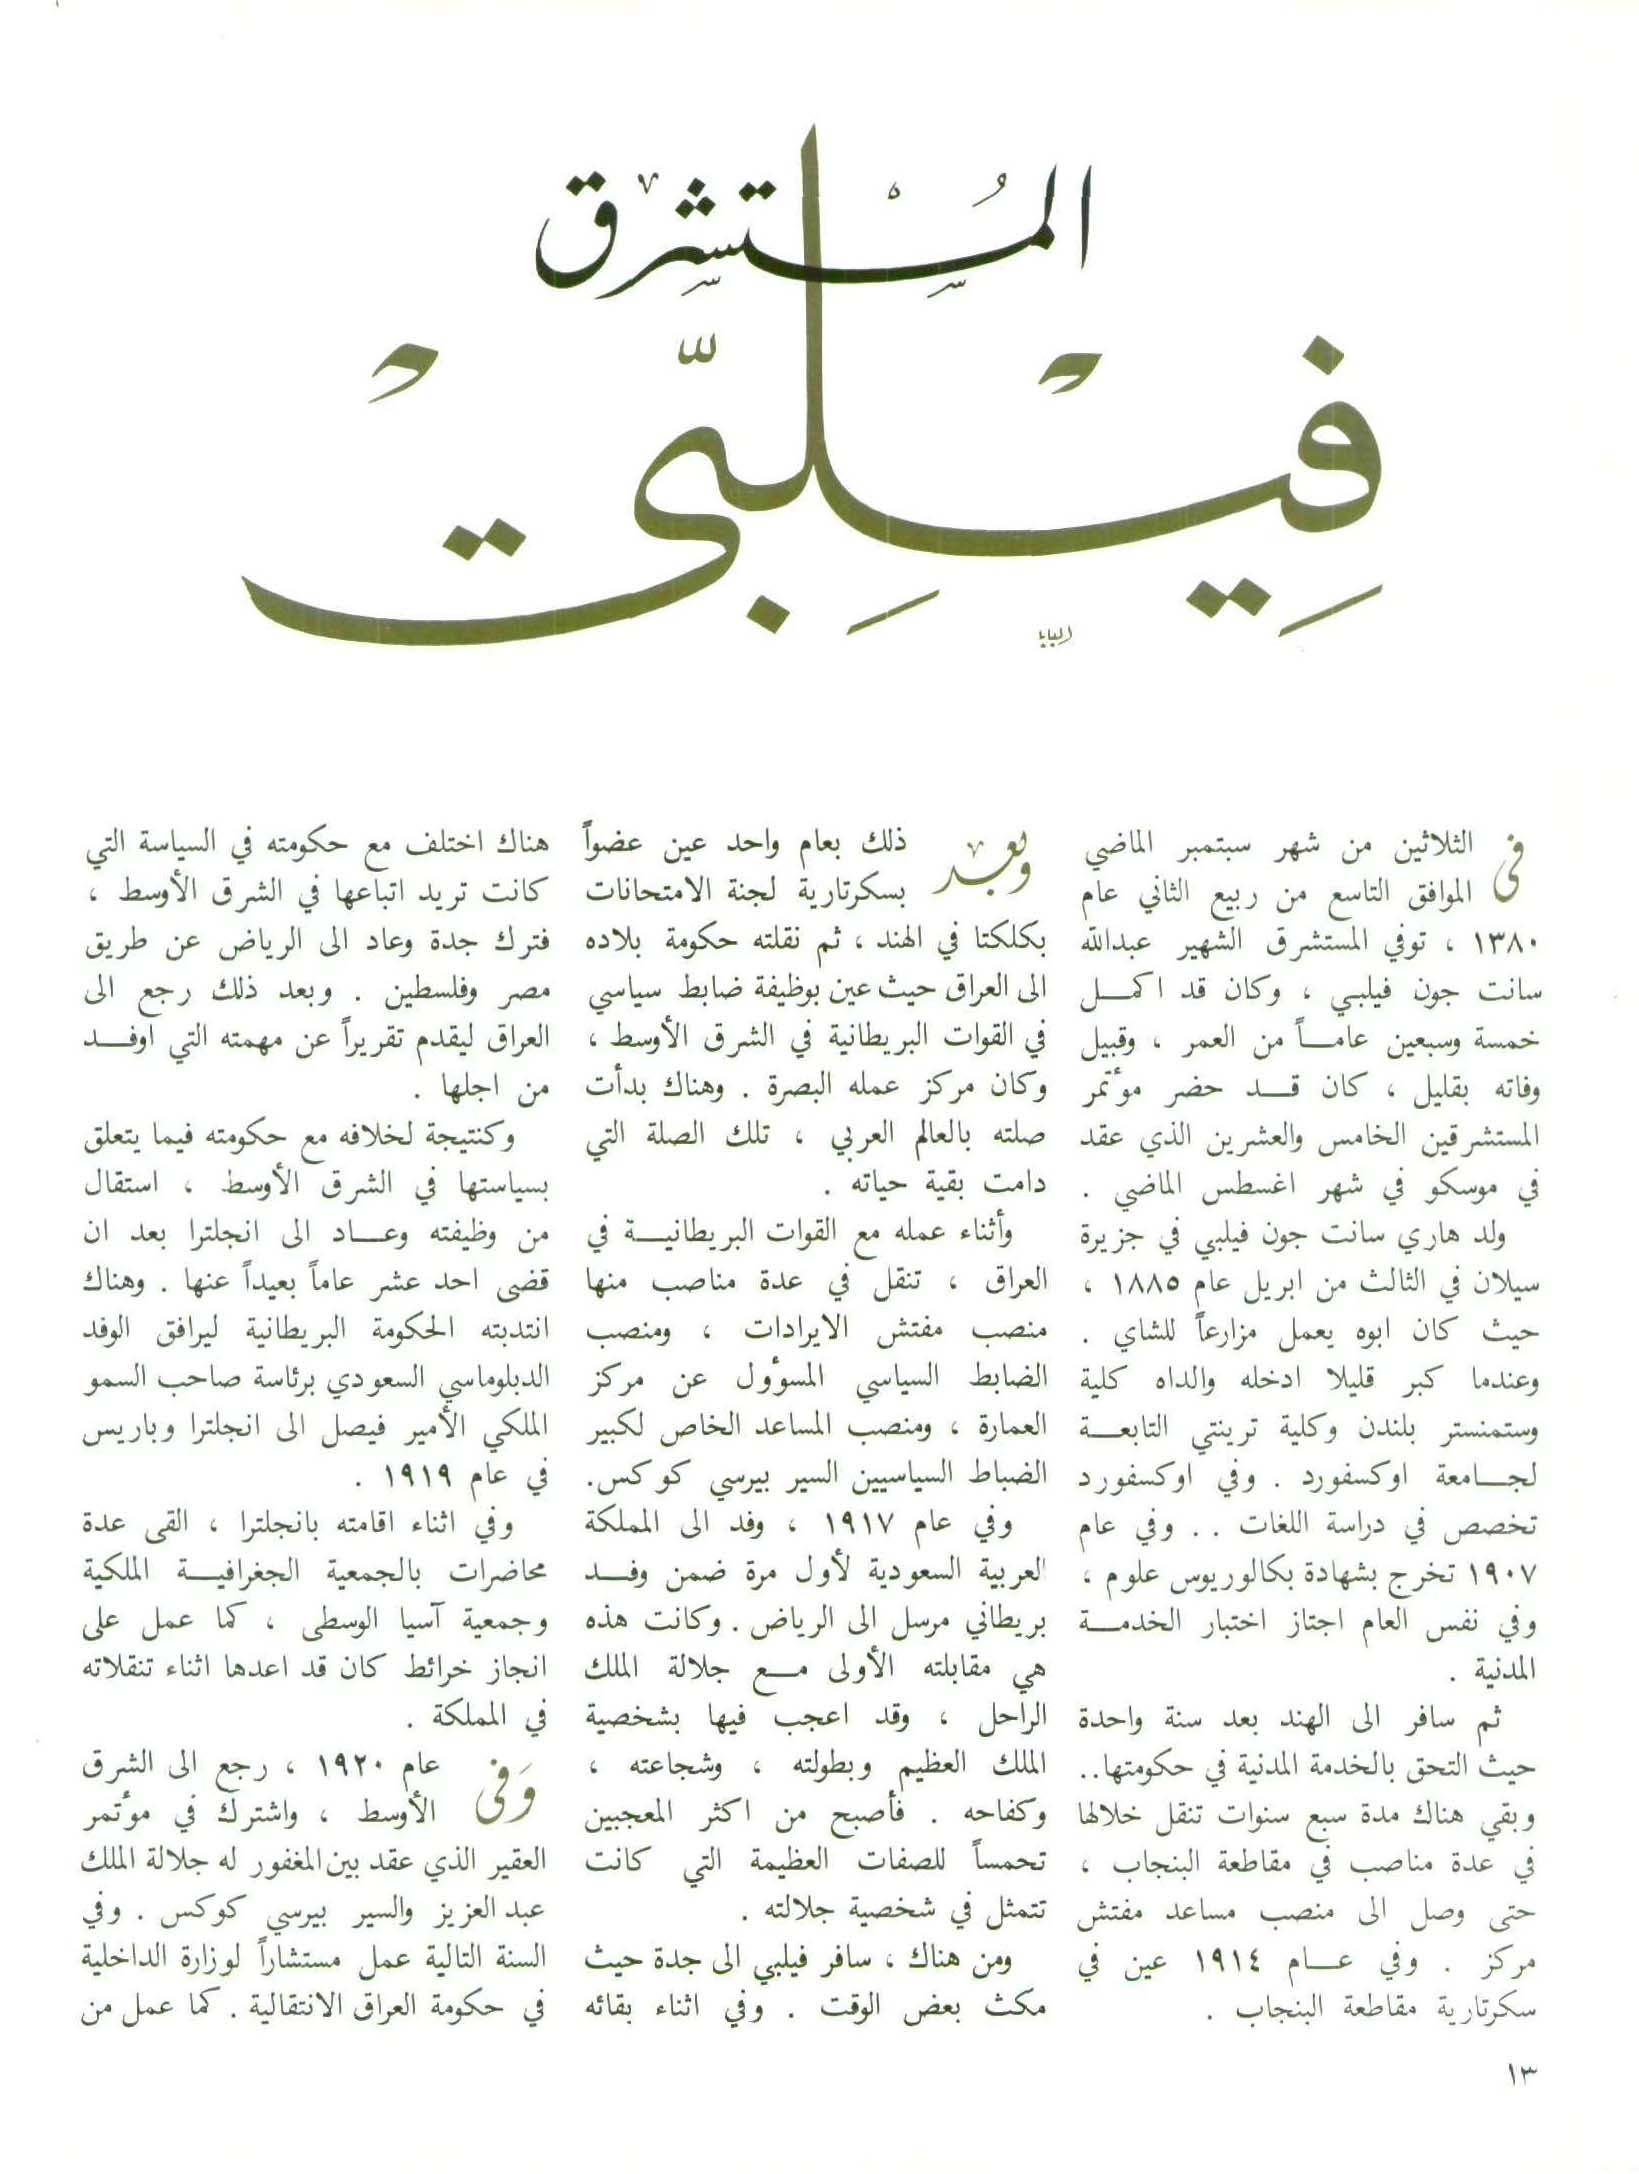 المُسْتشرِق
فِيْلِبّيْ
البابا
فى الثلاثين من شهر سبتمبر الماضي
الموافق التاسع من ربيع الثاني عام
١٣٨٠ ، توفي المستشرق الشهير عبدالله
سانت جون فيلبي ، وكان قد اكمـل
خمسة وسبعين عامـاً من العمر ، وقبيل
وفاته بقليل ، كان قـد حضر مؤتمر
المستشرقين الخامس والعشرين الذي عقد
في موسكو في شهر اغسطس الماضي .
ولد هاري سانت جون فيلبي في جزيرة
سيلان في الثالث من ابريل عام ١٨٨٥ ،
حيث كان ابوه يعمل مزارعاً للشاي .
وعندما كبر قليلا ادخله والداه كلية
وستمنستر بلندن وكلية ترينتي التابعـة
لجـامعة اوكسفورد . وفي اوكسفورد
تخصص في دراسة اللغات . . وفي عام
١٩٠٧ تخرج بشهادة بكالوريوس علوم ،
وفي نفس العام اجتاز اختبار الخدمـة
المدنية .
ثم سافر الى الهند بعد سنة واحدة
حيث التحق بالخدمة المدنية في حكومتها..
وبقي هناك مدة سبع سنوات تنقل خلالها
في عدة مناصب في مقاطعة البنجاب ،
حتى وصل الى منصب مساعد مفتش
مركز . وفي عـام ١٩١٤ عين في
سكرتارية مقاطعة البنجاب .
وبعد ذلك بعام واحد عين عضواً
بسكرتارية لجنة الامتحانات
بكلكتا في الهند ، ثم نقلته حكومة بلاده
الى العراق حيث عين بوظيفة ضابط سياسي
في القوات البريطانية في الشرق الأوسط ،
وكان مركز عمله البصرة . وهناك بدأت
صلته بالعالم العربي ، تلك الصلة التي
دامت بقية حياته .
وأثناء عمله مع القوات البريطانيـة في
العراق ، تنقل في عدة مناصب منها
منصب مفتش الايرادات ، ومنصب
الضابط السياسي المسؤول عن مركز
العمارة ، ومنصب المساعد الخاص لكبير
الضباط السياسيين السير بيرسي كوكس.
وفي عام ١٩١٧ ، وفد الى المملكة
العربية السعودية لأول مرة ضمن وفـد
بريطاني مرسل الى الرياض . وكانت هذه
هي مقابلته الأولى مـع جلالة الملك
الراحل ، وقد اعجب فيها بشخصية
الملك العظيم وبطولته ، وشجاعته ،
وكفاحه . فأصبح من اكثر المعجبين
تحمساً للصفات العظيمة التي كانت
تتمثل في شخصية جلالته .
ومن هناك ، سافر فيلبي الى جدة حيث
مكث بعض الوقت . وفي اثناء بقائه
هناك اختلف مع حكومته في السياسة التي
كانت تريد اتباعها في الشرق الأوسط ،
فترك جدة وعاد الى الرياض عن طريق
مصر وفلسطين . وبعد ذلك رجع الى
العراق ليقدم تقريراً عن مهمته التي اوفـد
من اجلها .
وكنتيجة لخلافه مع حكومته فيما يتعلق
بسياستها في الشرق الأوسط ، استقال
من وظيفته وعـاد الى انجلترا بعد ان
قضى احد عشر عاماً بعيداً عنها . وهناك
انتدبته الحكومة البريطانية ليرافق الوفد
الدبلوماسي السعودي برئاسة صاحب السمو
الملكي الأمير فيصل الى انجلترا وباريس
في عام ١٩١٩ .
وفي اثناء اقامته بانجلترا ، القى عدة
محاضرات بالجمعية الجغرافيـة الملكية
وجمعية آسيا الوسطى ، كما عمل على
انجاز خرائط كان قد اعدها اثناء تنقلاته
في المملكة .
وَفى عام ١٩٢٠ ، رجع الى الشرق
الأوسط ، واشترك في مؤتمر
العقير الذي عقد بين المغفور له جلالة الملك
عبد العزيز والسير بيرسي كوكس . وفي
السنة التالية عمل مستشاراً لوزارة الداخلية
في حكومة العراق الانتقالية . كما عمل من
١٣